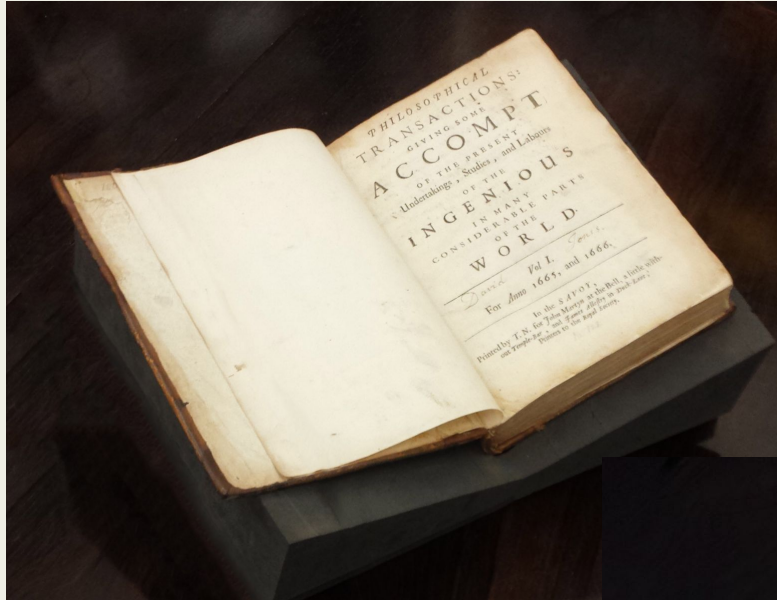 PHILOSOPHICAL
TRANSACTIONS:
GIVING SOME
ACCOMPT
OF THE PRESENT
Undertakings, Studies, and Labours
OF THE
INGENIOUS
IN MANY
CONSIDERABLE PARTS
OF THE
WORLD.
Vol I.
David
For Anno 1665, and 1666.
In the SAVOY,
Printed by T. N. for John Martyn at the Bell, a little with-
out Temple-Bar, and James Allestry in Duck-Lane,
Printers to the Royal Society.